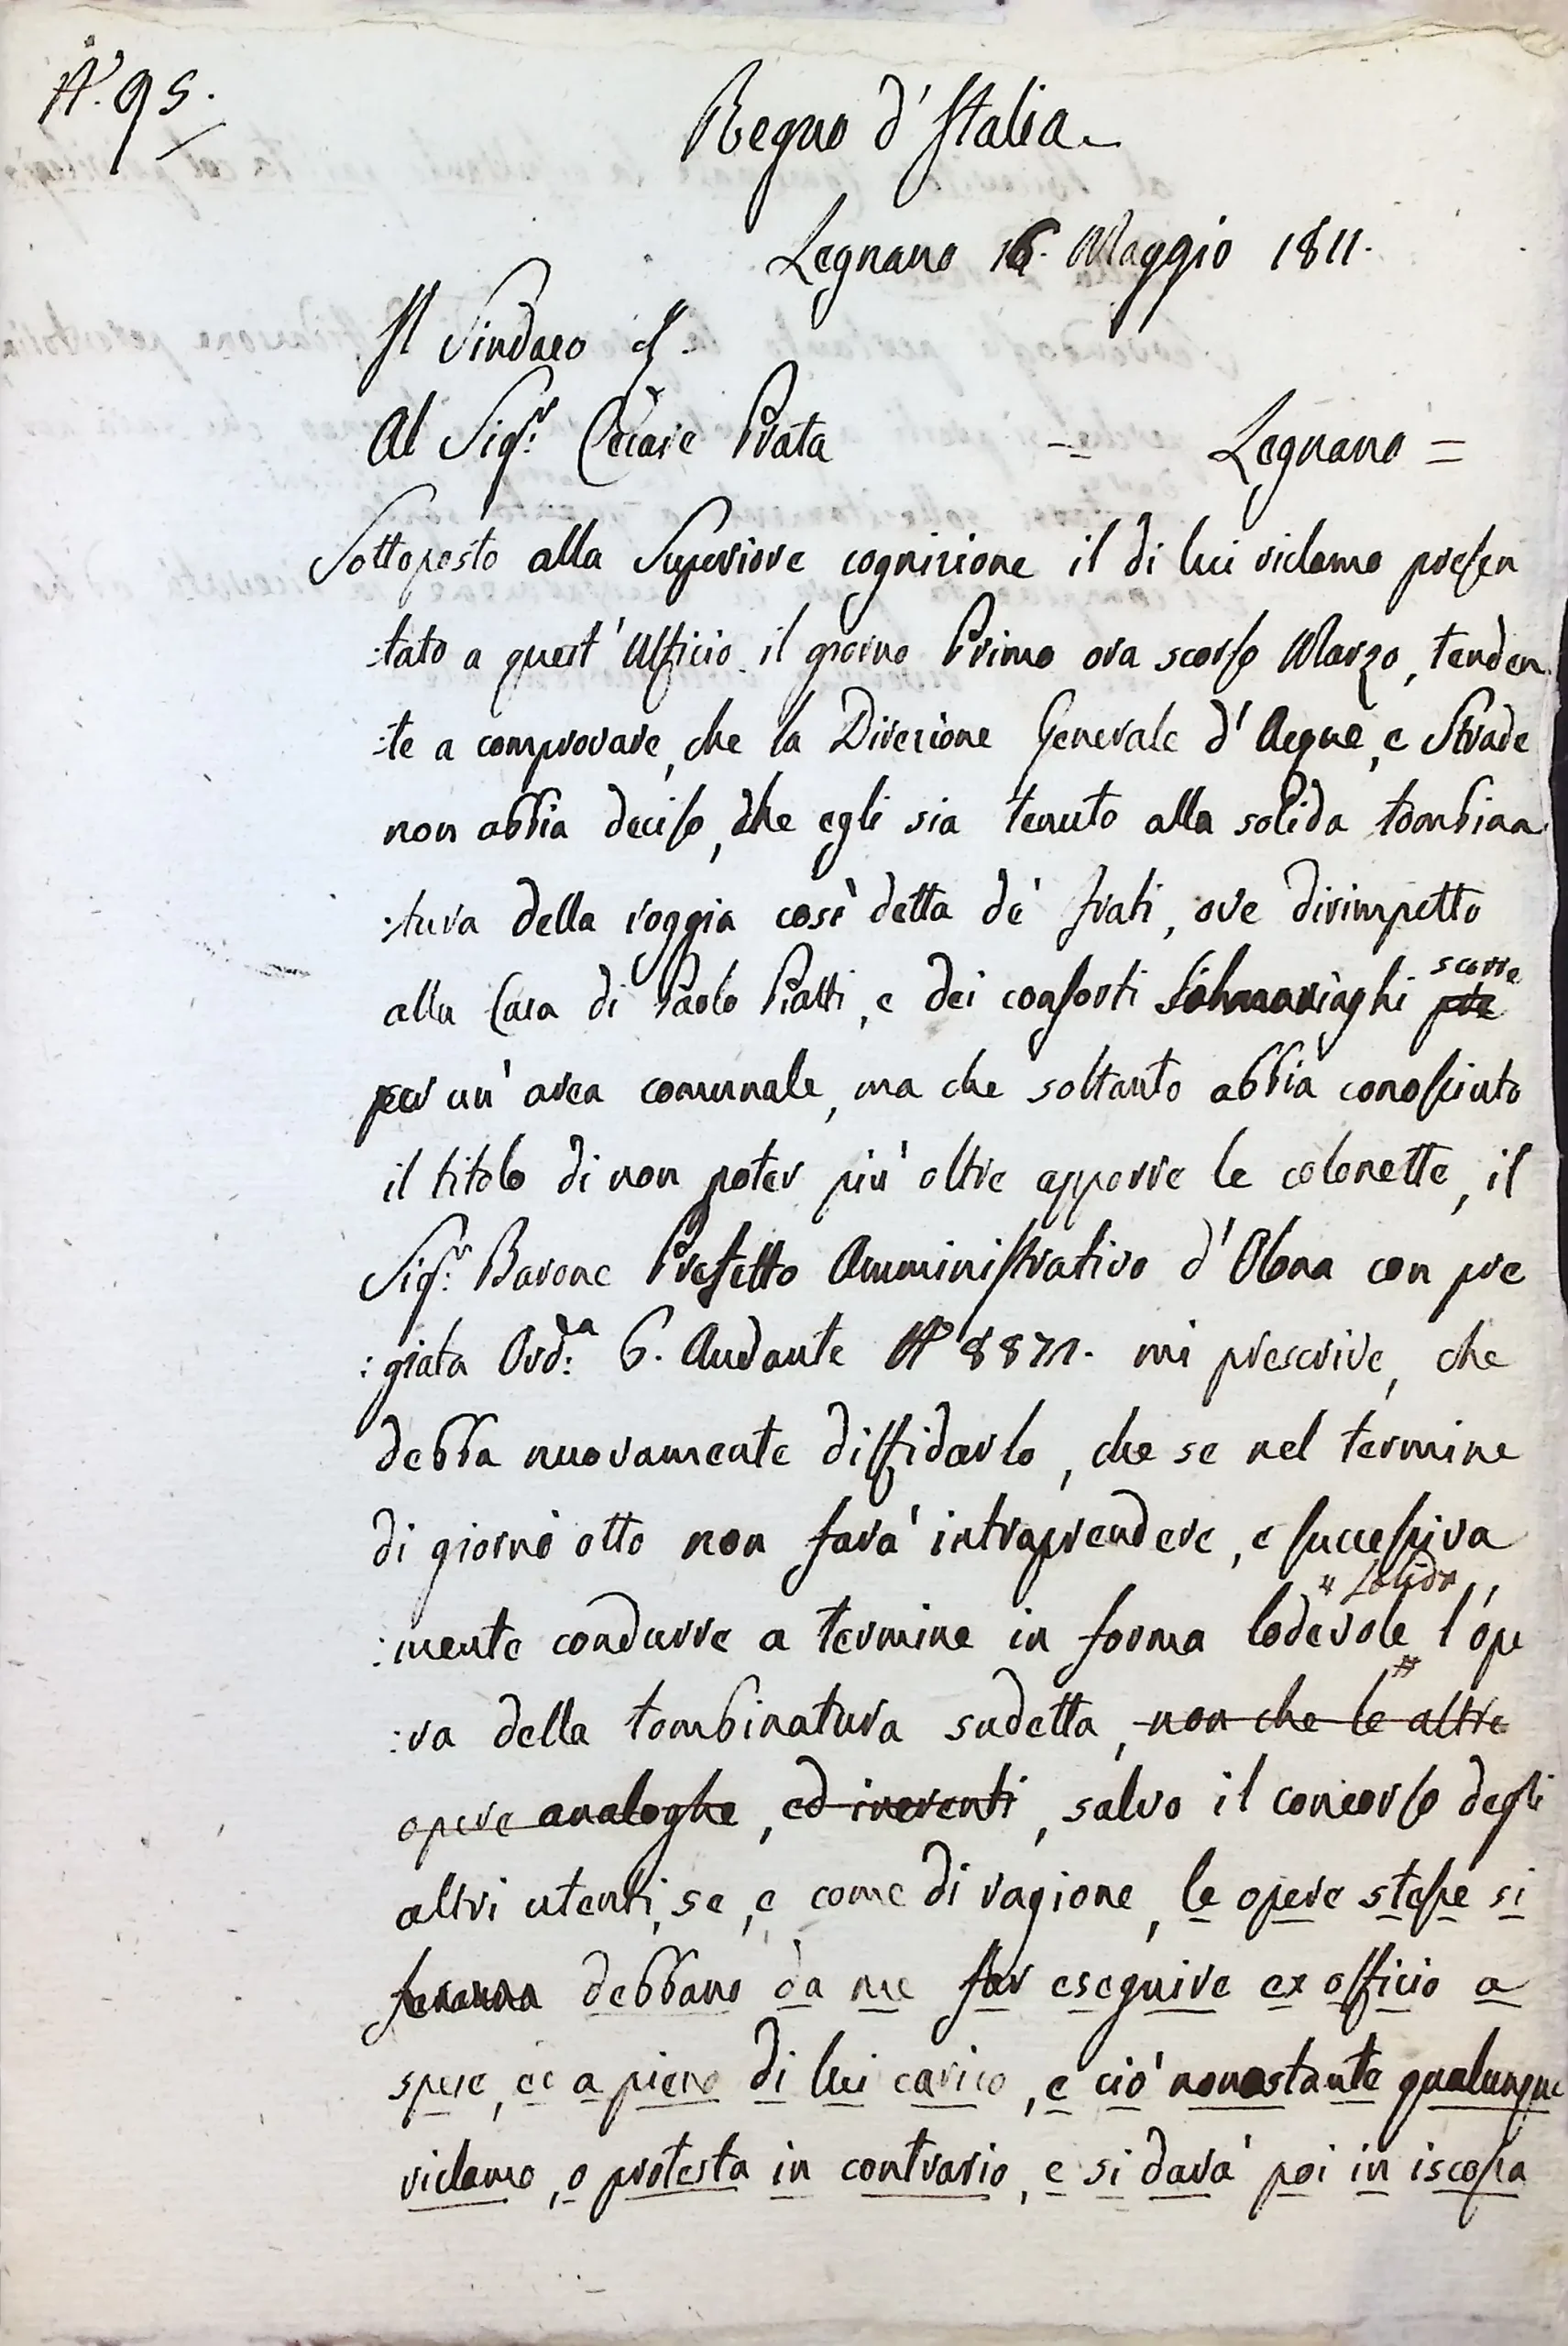 N.° 95.
Regno d'Italia.
Legnano 16. Maggio 1811.
Il Sindaco
Al Sigr: Cesare Prata = Legnano =
Sottoposto alla Superiore cognizione il di lui riclamo presen
:tato a quest'Ufficio il giorno Primo ora scorso Marzo, tenden
:te a comprovare, che la Direzione Generale d'Acque, e Strade
non abbia deciso, che egli sia tenuto alla solida tombina
:tura della roggia così detta dè frati, ove dirimpetto
alla Casa di Paolo Piatti, e dei consorti scorre
per un'area comunale, ma che soltanto abbia conosciuto
il titolo di non poter più oltre apporre le colonette, il
Sigr: Barone Prefetto Amministrativo d'Olona con pre
:giata Ord:a 6. Andante N° 8871. mi prescrive, che
debba nuovamente diffidarlo, che se nel termine
di giorni otto non farà intraprendere, e successiva
solida
:mente condurre a termine in forma lodevole l'ope
:ra della tombinatura sudetta, non che le altre
opere analoghe, ed inerenti, salvo il concorso degli
altri utenti, se, e come di ragione, le opere stesse si
debbano da me far eseguire ex officio a
spese, ec a pieno di lui carico, e ciò nonostante qualunque
riclamo, o protesta in contrario, e si darà poi in iscossa